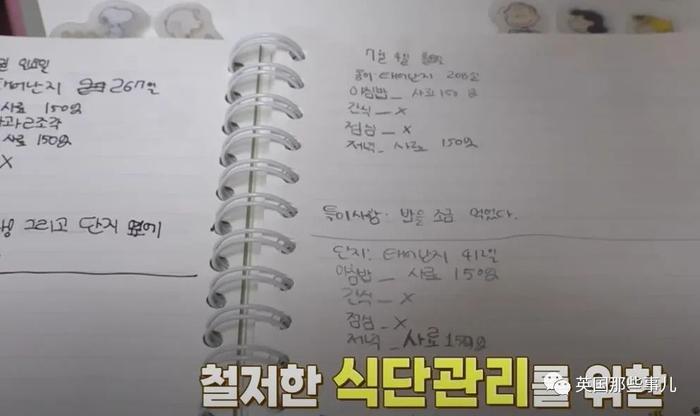 267일
사료 150알
사료 150알
X
그리고 단지 옆에
7월
태어난지
아침밥 _ 사료 150알
간식 _ X
점심 _ X
저녁 _ 사료 150알
특이사항: 밥을 조금 먹었다.
단지: 태어난지 412일
아침밥 _ 사료 150알
간식 _ X
점심 _ X
저녁 _ 사료 150알
철저한 식단관리를 위한
英国那些事儿